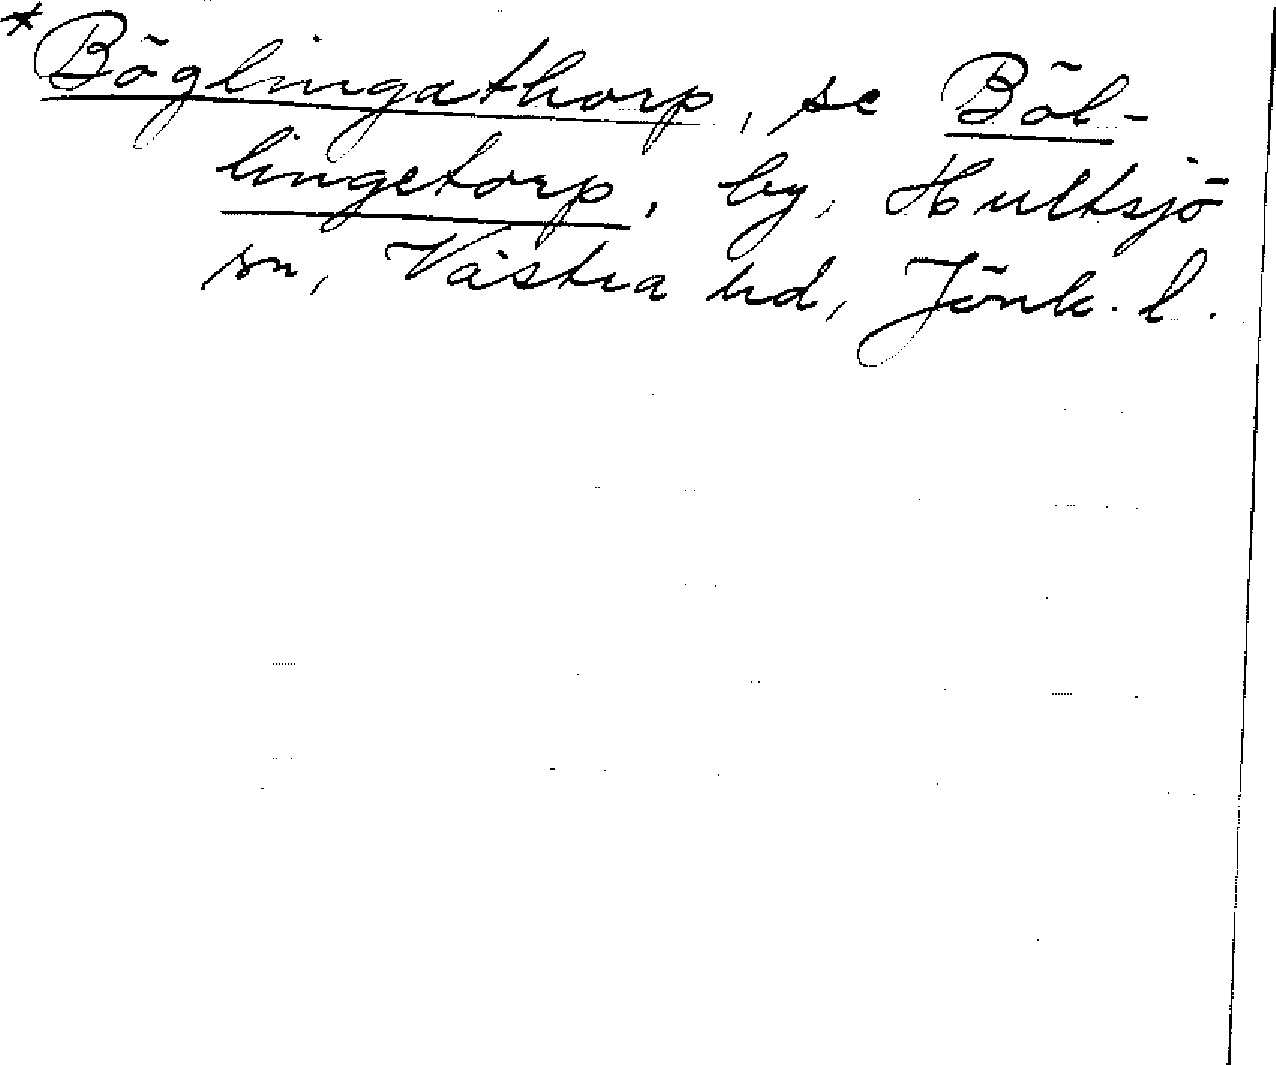 *Böglingathorp, se Böl-
lingetorp, by, Hultsjö
sn, Västra hd, Jönk. l.